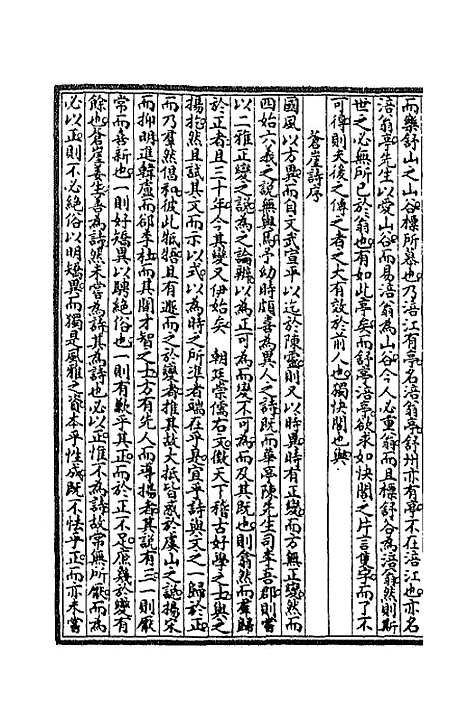 而樂舒山之山谷標所慕也乃涪江有亭名涪翁亭舒州亦有亭不在涪江也亦名
涪翁亭先生以愛山谷而易涪翁為山谷今人必重翁而且標舒谷為涪翁然則斯
世之必無所已於翁也有如此亭矣而舒亭涪亭欲求如快閣之片言隻字而了不
可得則夫後之傳之者之大有效於前人也獨快閣也與
蒼崖詩序
國風以方異而自文武宣平以迄於陳靈則又以時異時有正變而方無正變然而
四始六義之說無與焉予幼時頗喜為異人之詩既而華亭陳先生司李吾郡則嘗
以二雅正變之說為之論辨以為正可為而變不可為而及其既也則翕然而羣歸
於正者且三十年今其變又伊始矣 朝廷崇儒右文徵天下稽古好學之士與之
揚扢然且試其文而示以式以為時之所準者端在乎是宣乎詩與文之一歸於正
而乃羣然倡和彼此牴牾且有遯而之於變者推其故大抵皆惑於虞山之說揚宋
而抑明進韓盧而却李杜而其間才智之士方有先人而導揚者其說有三一則厭
常而喜新也一則好矯異以騁絕俗也一則有歉乎其正而於正不足庶幾於變有
餘也蒼崖姜生善為詩然未嘗為詩其為詩也必以正惟不為詩故常無所厭而為
必以正則不必絕俗以明矯異而獨是風雅之資本乎性成既不怯乎正而亦未嘗